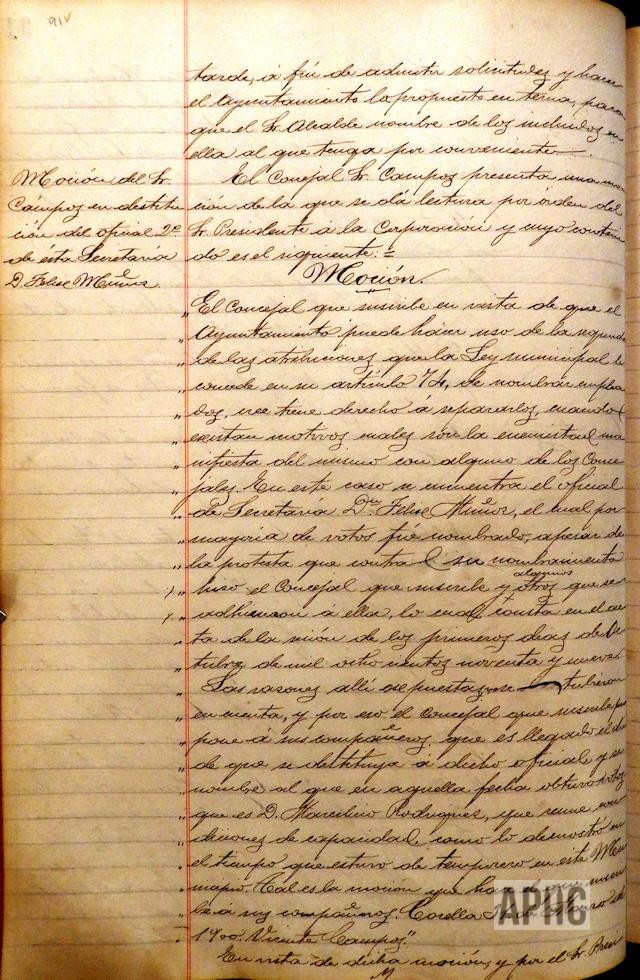 91v
tarde, á fin de admitir solicitudes y hacer
el Ayuntamiento lo propuesto en terna, para
que el Sr. Alcalde nombre de los incluidos en
ella al que tenga por conveniente.
Moción del Sr.
Campos en destitu
ción del oficial 2º
de ésta Secretaría
D. Felise Muñoz.
El Concejal Sr. Campos presenta una mo
ción de la que se dá lectura por órden del
Sr. Presidente á la Corporación y cuyo conteni
do es el siguiente:=
Moción.
„El Concejal que suscribe en vista de que el
„Ayuntamiento puede hacer uso de la segunda
„de las atribuciones que la Ley municipal le
„concede en su artículo 74, de nombrar emplea
„dos, cree tiene derecho á separarlos, cuando
„existan motivos cuales son la enemistad ma
„nifiesta del mismo con alguno de los Conce
„jales. En este caso se encuentra el oficial
„de Secretaría Dn. Felise Muñoz, el cual por
„mayoria de votos fué nombrado, apesar de
„la protesta que contra su nombramiento
„hizo el Concejal que suscribe y algunos otros que se
„adhirieron á ella, lo cual consta en el ac
„ta de la sesión de los primeros dias de Oc
„tubre de mil ochocientos noventa y nueve.
„Las razones allí expuestas no se tubieron
„en cuenta, y por eso el Concejal que suscribe pro
„pone á sus compañeros que es llegado el dia
„de que se destituya á dicho oficial y se
„nombre al que en aquella fecha obtuvo votos
„que es D. Marcelino Rodriguez, que reune con
„diciones de capacidad, como lo demostró en
„el tiempo que estuvo de temporero en este Muni
„cipio. Tal es la moción que hace el que suscri
„be á sus compañeros. Corella de Marzo de
„1900. Vicente Campos."
En vista de dicha moción, y por el Sr. Presi